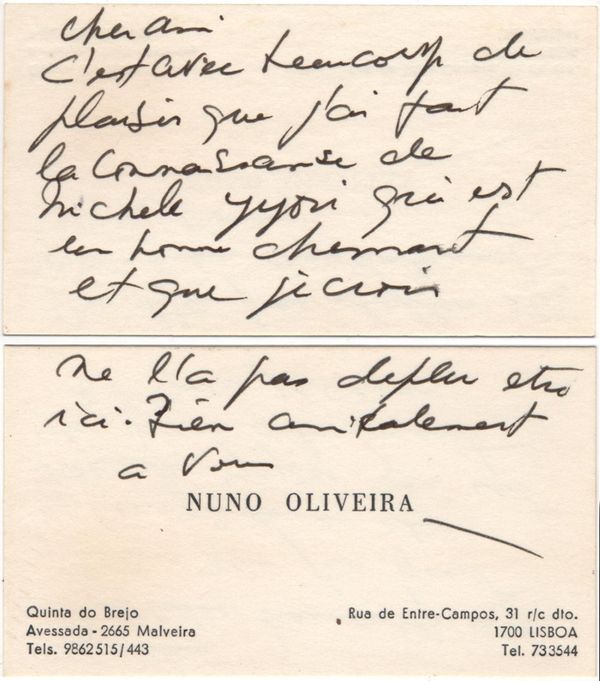 cher ami
C'est avec beaucoup de
plaisir que j'ai fait
la connaissanse de
Michele
qui est
un homme charmant
et que je crois
ne l'a pas deplu etre
ici. Bien amicalement
a Vous
NUNO OLIVEIRA
Quinta do Brejo
Avessada - 2665 Malveira
Tels. 9862515/443
Rua de Entre-Campos, 31 r/c dto.
1700 LISBOA
Tel. 733544